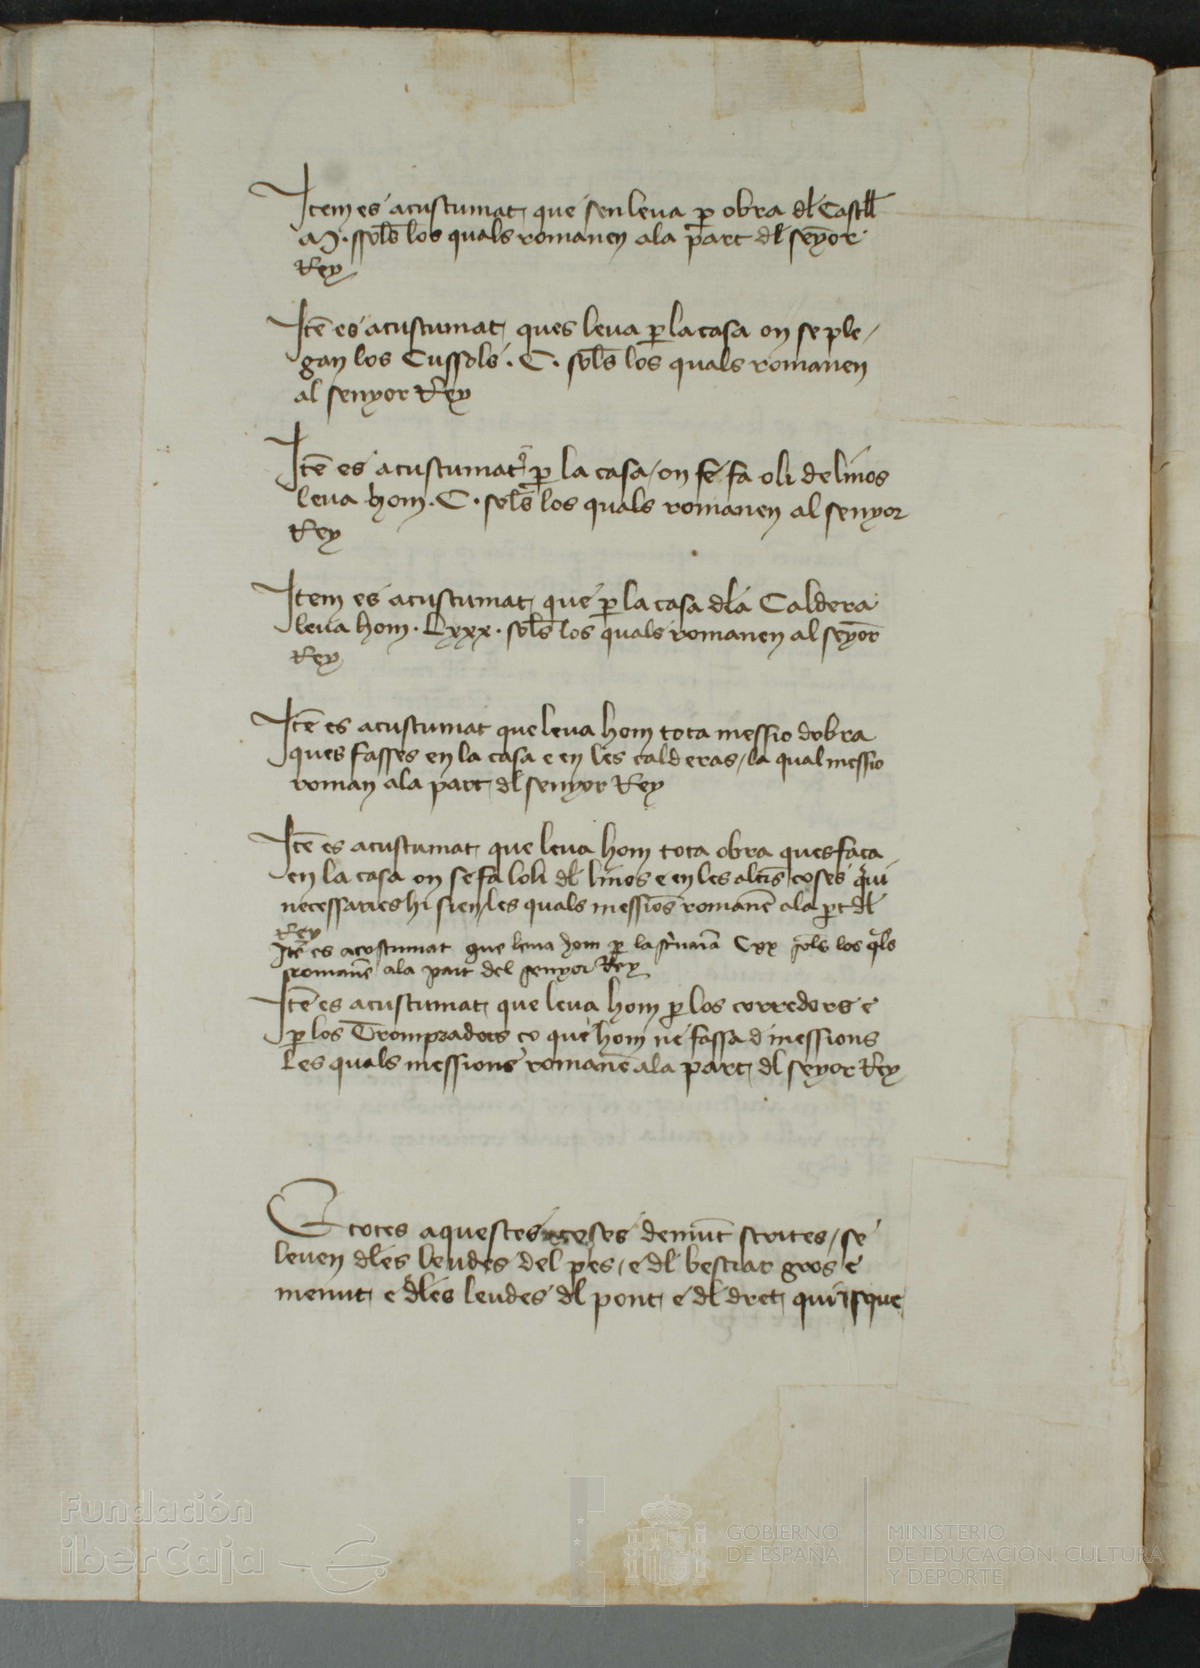 Item es acustumat que sen leva p obra dl Castll
M. sols los quals romanen ala part dl seyor
Rey
Itē es acustumat ques leva p la casa on se ple
gan los Cussols. C. sols los quals romanen
al senyor Rey
Itē es acustumat p la casa / on se fa oli de linos
leva hom. C. sols los quals romanen al senyor
Rey
Item es acustumat que p la casa dla Caldera
leva hom. Lxxx. sols los quals romanen al seyor
Rey
Itē es acustumat que leva hom tota messio dobra
ques fasses en la casa e en les calderas / la qual messio
roman ala part dl senyor Rey
Itē es acustumat que leva hom tota obra ques faca
en la casa on se fa loli dl linos e en les altrs coses qui
necessaries hi sien / les quals messios romanē ala pt dl
Rey
Itē es acostumat que leva hom p la Cxx sols los qls
romanē ala part del senyor Rey
Itē es acustumat que leva hom p los corredors e
p los Trompadors co que hom ne fassa d messions
les quals messions romanē ala part dl seyor Rey
E totes aquestes coses demūt scrites / se
leven dles leudes del pes / e dl bestiar gros e
menut e dles leudes dl pont e dl dret quiisque
Fundación
iberCaja
GOBIERNO
DE ESPAÑA
MINISTERIO
DE EDUCACIÓN, CULTURA
Y DEPORTE